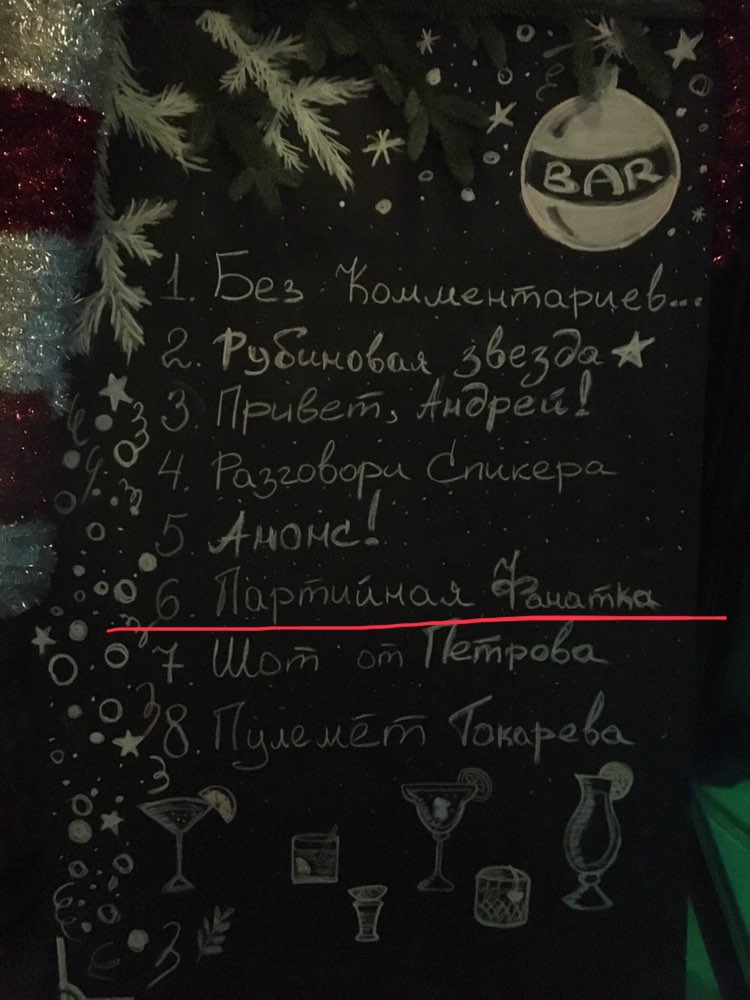 BAR
1. Без Комментариев...
2. Рубиновая звезда
3. Привет, Андрей!
4. Разговори Спикера
5 Анонс!
6. Партийная Фанатка
7. Шот от Петрова
8. Пулемёт Токарева